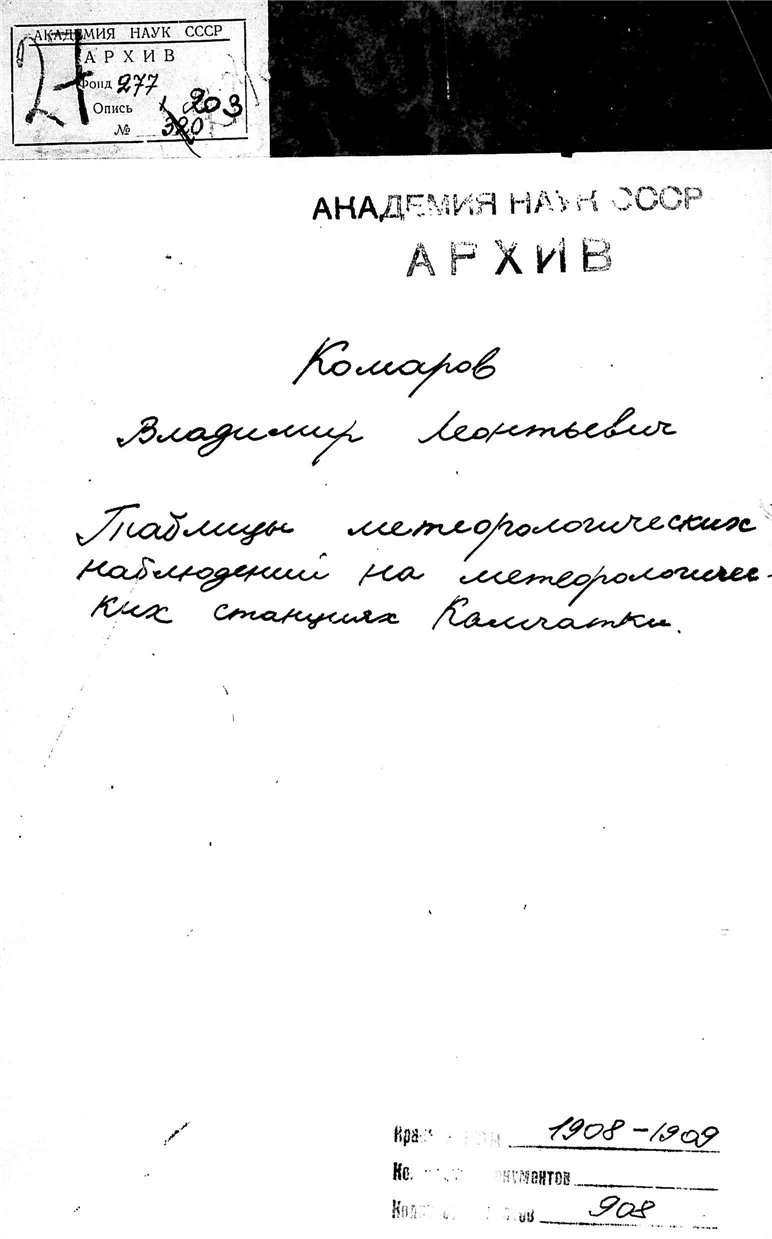 АКАДЕМИЯ НАУК СССР
АРХИВ
Фонд 277
Опись 1
№ 320 203
АКАДЕМИЯ НАУК СССР
АРХИВ
Комаров
Владимир Леонтьевич
Таблицы метеорологических
наблюдений на метеорологичес-
ких станциях Камчатки.
1908-1909
908